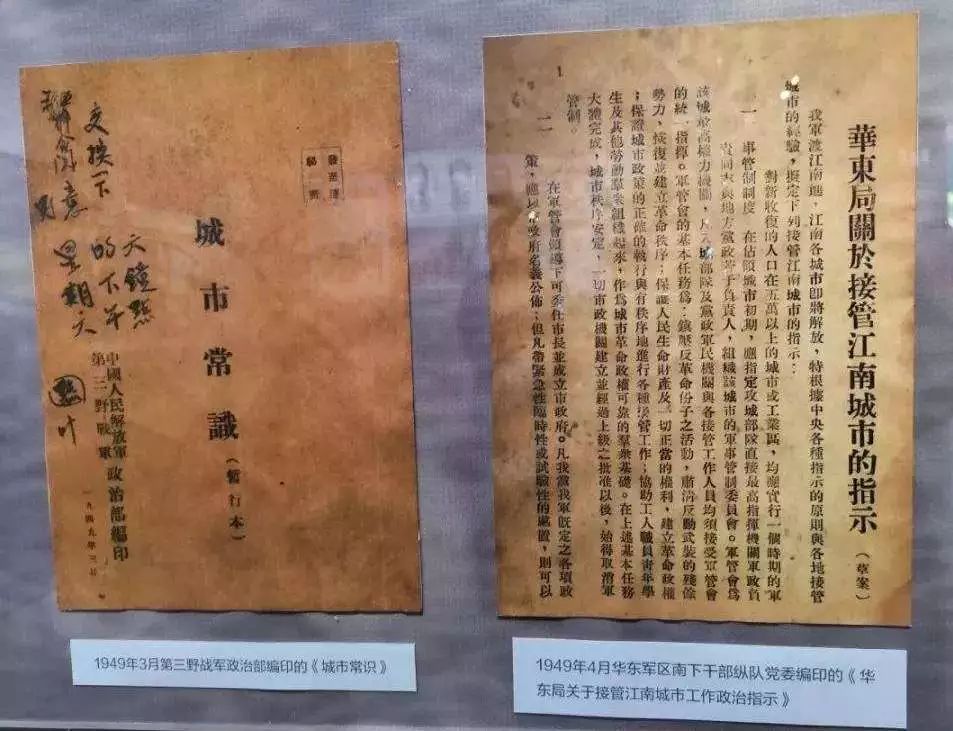 發至連
城市常識
（暫行本）
中國人民解放軍
第三野戰軍
政治部編印
一九四九年三月
交換下
意
的下午
星期六
六鐘點
1949年3月第三野战军政治部编印的《城市常识》
華東局關於接管江南城市的指示
（草案）
我軍渡江南進，江南各城市即將解放，特根據中央各種指示的原則與各地接管
城市的經驗，擬定下列接管江南城市的指示：
一
對新收復的人口在五萬以上的城市或工業區，均應實行一個時期的軍
事管制制度　在佔領城市初期，應指定攻城部隊直接最高指揮機關軍政負
責同志與地方黨政若干負責人，組織該城市的軍事管制委員會。軍管會為
該城最高權力機關，凡入城部隊及黨政軍民機關與各接管工作人員均須接受軍管會
的統一指揮。軍管會的基本任務為：鎮壓反革命份子之活動，肅清反動武裝的殘餘
勢力，恢復並建立革命秩序；保護人民生命財產及一切正當的權利，建立革命政權
；保證城市政策的正確的執行與有秩序地進行各種接管工作；協助工人職員青年學
生及其他勞動羣衆組織起來，作為城市革命政權可靠的羣衆基礎。在上述基本任務
大體完成，城市秩序安定，一切市政機關建立並經過上級之批准以後，始得取消軍
管制。
二
在軍管會領導下可委任市長並成立市政府。凡我黨我軍既定之各項政
策，應以市政府名義公佈；但凡帶緊急性臨時性或試驗性的處置，則可以
1
1949年4月华东军区南下干部纵队党委编印的《华
东局关于接管江南城市工作政治指示》